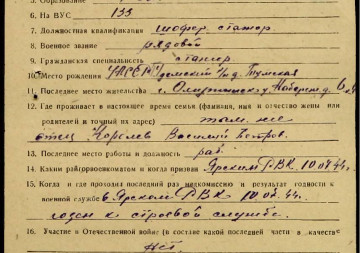 5. Образование
6. На ВУС 133
7. Должностная квалификация шофер стажер
8. Военное звание рядовой
9. Гражданская специальность стажер
10. Место рождения
11. Последнее место жительства
12. Где проживает в настоящее время семья (фамилия, имя и отчество жены или
родителей и точный их адрес) там же
отец Королев Василий Петров.
13. Последнее место работы и должность раб
14. Каким райгорвоенкоматом и когда призван Ярским РВК 10.04.44г.
15. Когда и где проходил последний раз медкомиссию и результат годности к
военной службе в Ярском РВК 10.05.44г.
годен к строевой службе.
16. Участие в Отечественной войне (в составе какой последней части в качестве
нет.